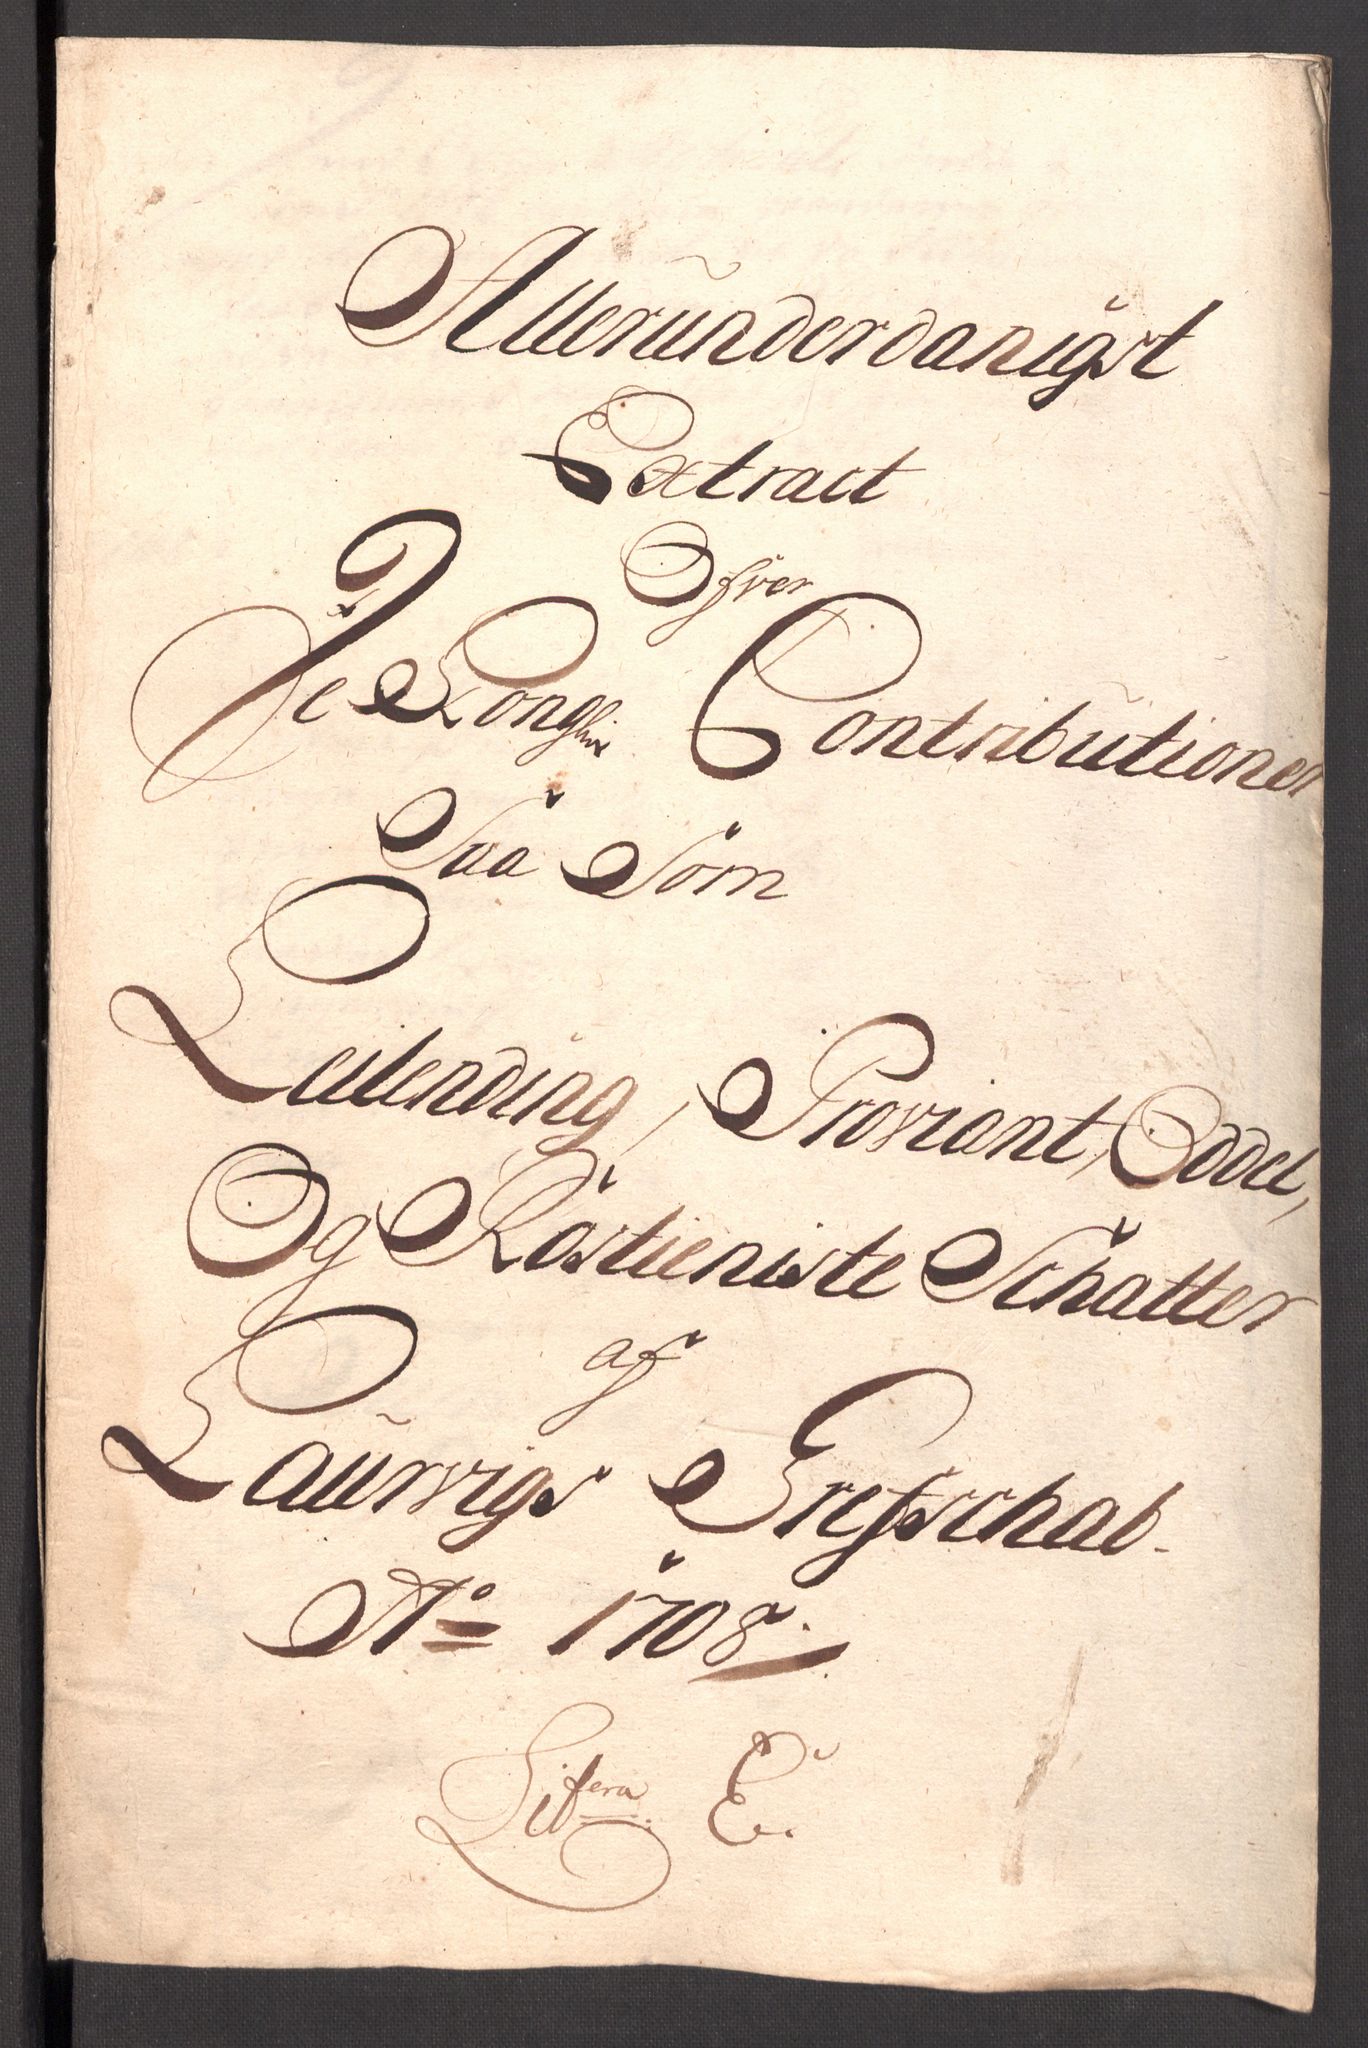 Allerunderdanigst
Extract
Ofver
De Kongl: Contributioner
Saa Som
Leilending, Proviant, Oddel,
Og Rostieniste Schatter
af
Laurvigs Grefschab.
Ao 1708.
Litera E.